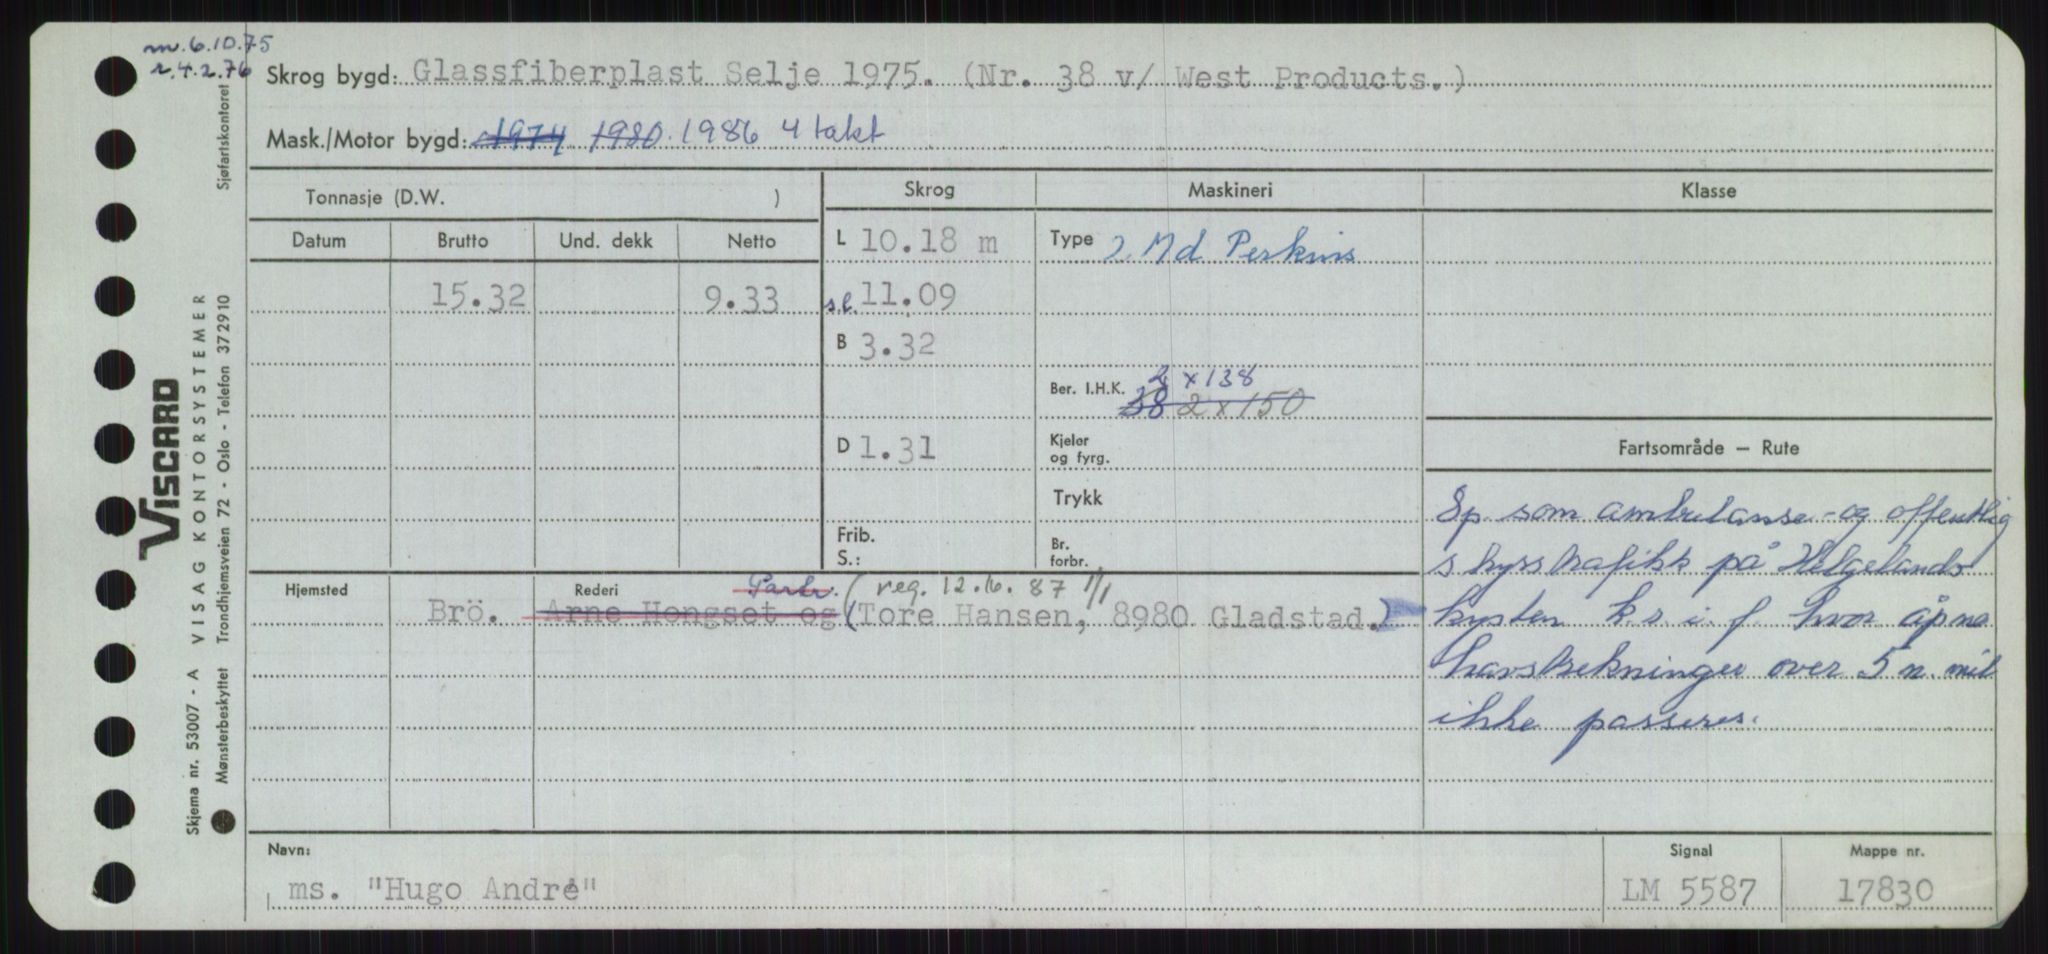 m. 6.10.75
r. 4.2.76
Skrog bygd: Glassfiberplast Selje 1975. (Nr. 38 v/ West Products.)
Mask./Motor bygd: 1974 1980. 1986 4 takt
Sjøfartskontoret
Tonnasje (D.W. )
Skrog
Maskineri
Klasse
Datum Brutto Und. dekk Netto
L 10.18 m
Type 2 Md Perkins
15.32 9.33
s.l. 11.09
B 3.32
2 x 138
Ber. I.H.K. 38 2 x 150
D 1.31
Kjeler
og fyrg.
Trykk
Frib.
S.:
Br.
forbr.
Fartsområde – Rute
Sp. som ambulanse- og offentlig
skysstrafikk på Helgelands
kysten k.s.i.f. hvor åpne
havstrekninger over 5 n. mil
ikke passeres.
Hjemsted
Rederi
Partr. (reg. 12.6. 87 1/1
Brö. Arne Hongset og (Tore Hansen, 8980 Gladstad.)
Navn:
ms. "Hugo André"
Signal
LM 5587
Mappe nr.
17830
VISCARD
VISAG KONTORSYSTEMER
Skjema nr. 53007 - A
Mønsterbeskyttet Trondhjemsveien 72 - Oslo - Telefon 372910